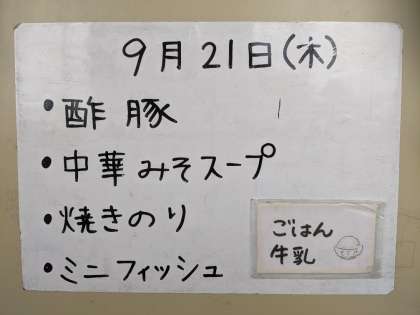 9月21日(木)
• 酢豚
• 中華みそスープ
• 焼きのり
• ミニフィッシュ
ごはん
牛乳